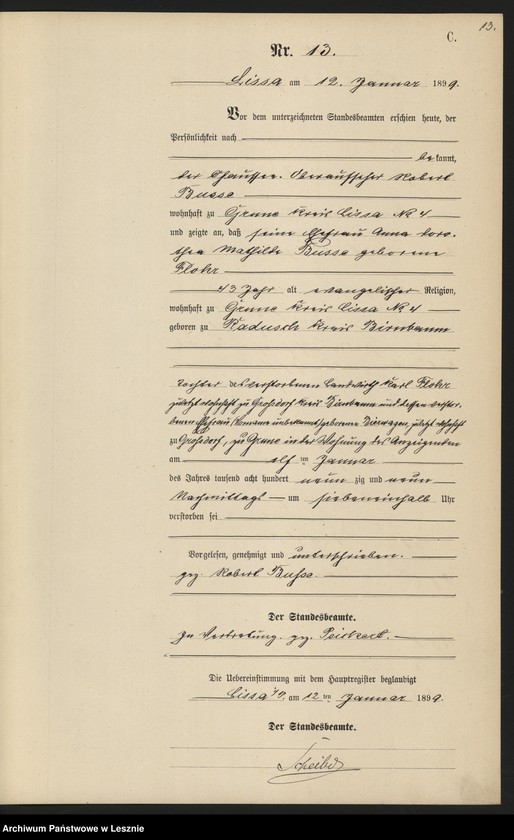 13.
C.
Nr. 13.
Lissa am 12. Januar 1899.
Vor dem unterzeichneten Standesbeamten erschien heute, der
Persönlichkeit nach
bekannt,
der Chaussee-Oberaufseher Robert
Busse
wohnhaft zu Grune Kreis Lissa No 4
und zeigte an, daß seine Ehefrau Anna Doro-
thea Mathilde Busse geborene
Flohr
43 Jahr alt evangelischer Religion,
wohnhaft zu Grune Kreis Lissa No 4
geboren zu Radusch Kreis Birnbaum
Tochter des verstorbenen Landwirth Karl Flohr
zuletzt wohnhaft zu Großdorf Kreis Birnbaum und dessen verstor-
benen Ehefrau (Vorname unbekannt) geborene zuletzt wohnhaft
zu Großdorf, zu Grune in der Wohnung des Anzeigenden
am elf ten Januar
des Jahres tausend acht hundert neun zig und neun
Nachmittags um siebeneinhalb Uhr
verstorben sei
Vorgelesen, genehmigt und unterschrieben.
gez. Robert Busse.
Der Standesbeamte.
In Vertretung. gez.
Die Uebereinstimmung mit dem Hauptregister beglaubigt
Lissa am 12 ten Januar 1899.
Der Standesbeamte.
Scheibe
Archiwum Państwowe w Lesznie